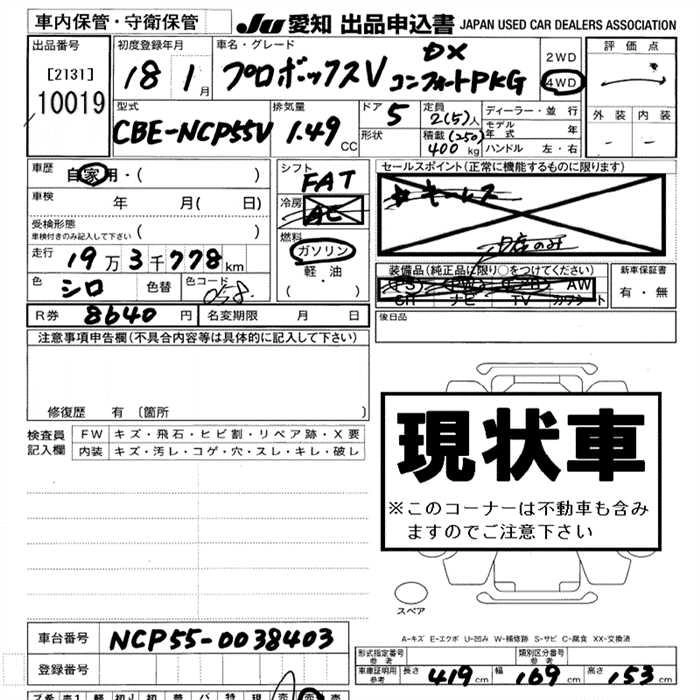 車内保管・守衛保管
JU 愛知 出品申込書 JAPAN USED CAR DEALERS ASSOCIATION
出品番号
[2131]
10019
初度登録年月
18 1月
車名・グレード
プロボックスV DX コンフォートPKG
2WD
4WD
評価点
外装 内装
- -
型式
CBE-NCP55V
排気量
1.49 CC
ドア 5
形状
定員 2(5)人
積載 (250) 400 kg
ディーラー・並行
モデル年式 年
ハンドル 左・右
車歴 自家用・( )
車検 年 月( 日)
受検形態
車検付きのみ記入して下さい ( )
走行 19万3千778km
色 シロ 色替 色コード 058
R券 8640円 名変期限 月 日
シフト
FAT
冷房
AC
燃料
ガソリン
軽・油
( ・ )
セールスポイント(正常に機能するものに限ります)
キーレス
装備品(純正品に限り○をつけてください)
PS PW AW
ナビ TV
新車保証書
有・無
後日品
注意事項申告欄(不具合内容等は具体的に記入して下さい)
修復歴 有 〔箇所 〕
検査員記入欄
FW キズ・飛石・ヒビ割・リペア跡・X要
内装 キズ・汚レ・コゲ・穴・スレ・キレ・破レ
現状車
※このコーナーは不動車も含み
ますのでご注意下さい
スペア
A-キズ E-エクボ U-凹み W-補修跡 S-サビ C-腐食 XX-交換済
車台番号 NCP55-0038403
登録番号
形式指定番号 参考
類別区分番号 参考
車庫証明用 参考 長さ 419cm 幅 169cm 高さ 153cm